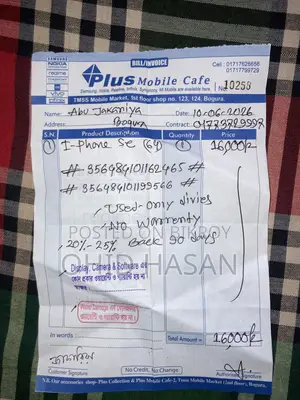 BILL/INVOICE
Cell : 01717628656
01717799729
HONOR
NOKIA
realme
VIVO
Plus Mobile Cafe
Samsung, Nokia, Realme, Infinix, Symphony, All Mobile are available here.
No. 10258
TMSS Mobile Market, 1st floor shop no. 123, 124, Bogura.
Name: Abu Jakariya
10-06-2026
Address: Bogura
Contract: 01779829998
S.N. Product Description Quantity Price
① I-phone Se (64) ① 16,000/=
# 356484101162465 #
# 356484101199566 #
Used-only divies
NO Warrenty
20%-25% Back 90 days
POSTED ON BIKROY
OHID HASAN
Display, Camera & Software এর
কোন প্রকার ওয়ারেন্টি ও গ্যারান্টি হয় না
ওয়ারেন্টি ও গ্যারান্টি হয় না
In words
Total Amount = 16,000/=
No Credit, No Change
Customer Signature
Authorize Signature
N.B. Our accessories shop- Plus Collection & Plus Mobile Cafe 2, Yasn Mobile Market (2nd floor), Bogura.